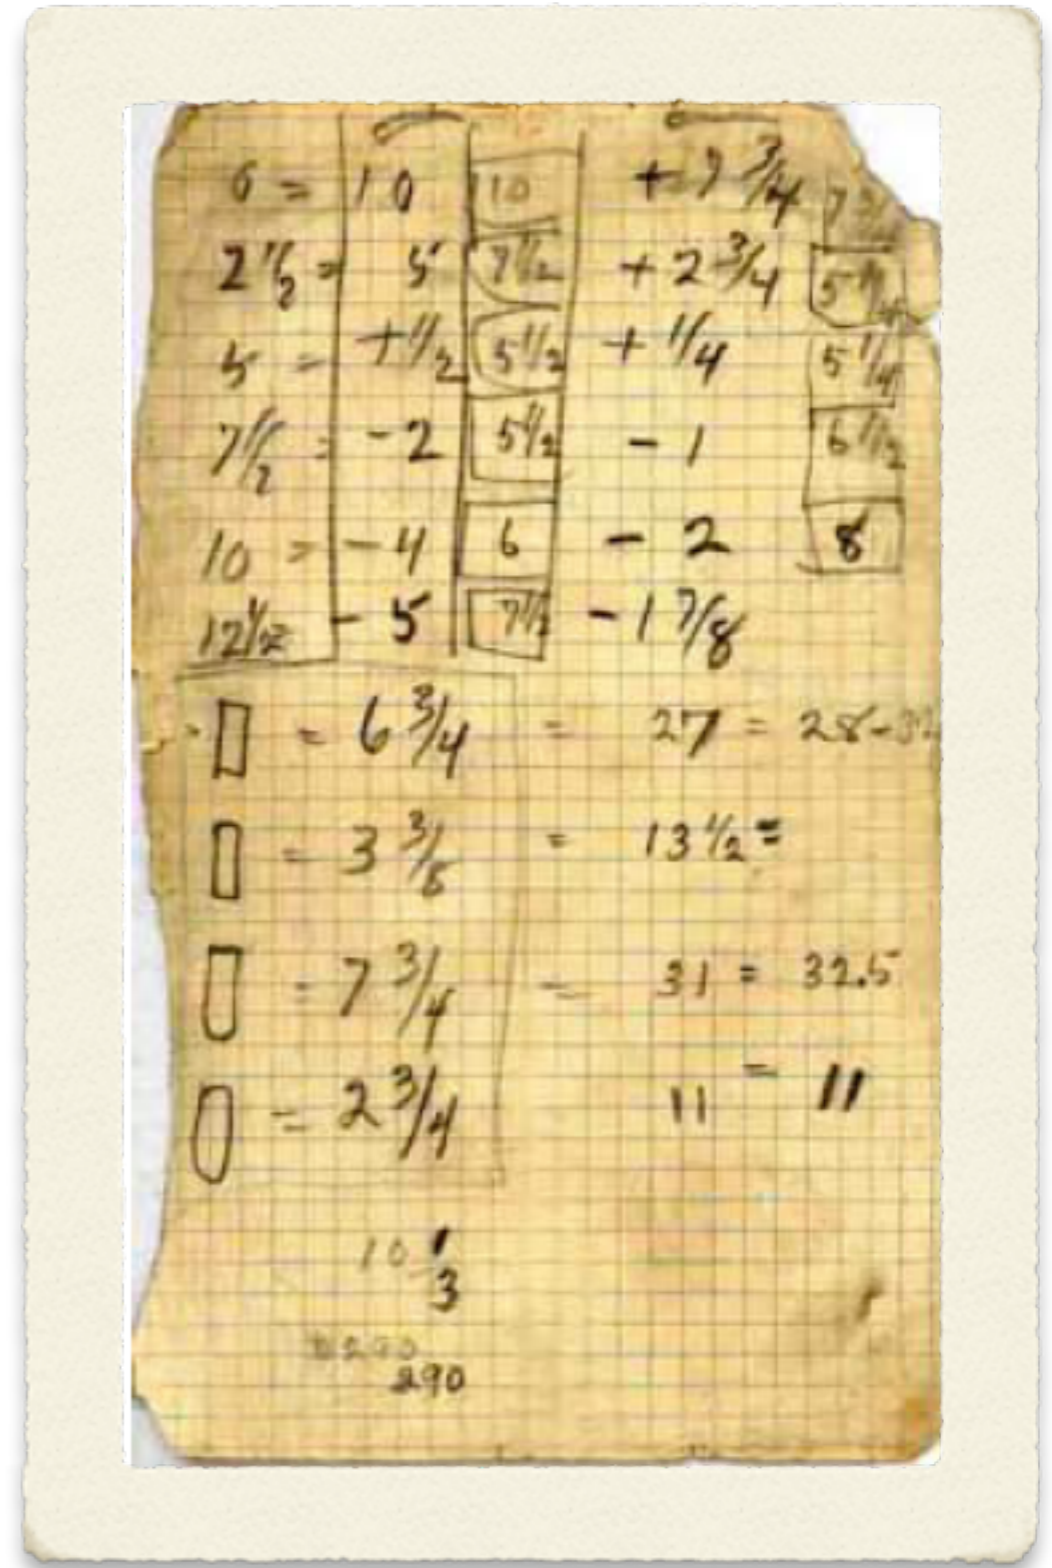 6 = 10 10 + 7 3/4 7 3/
2 1/2 = 5 7 1/2 + 2 3/4 5 1/4
5 = + 1/2 5 1/2 + 1/4 5 1/4
7 1/2 = - 2 5 1/2 - 1 6 1/2
10 = - 4 6 - 2 8
12 1/2 - 5 7 1/2 - 1 7/8
= 6 3/4 = 27 = 28-32
= 3 3/8 = 13 1/2 =
= 7 3/4 = 31 = 32.5
= 2 3/4 11 = 11
10 1/3
290